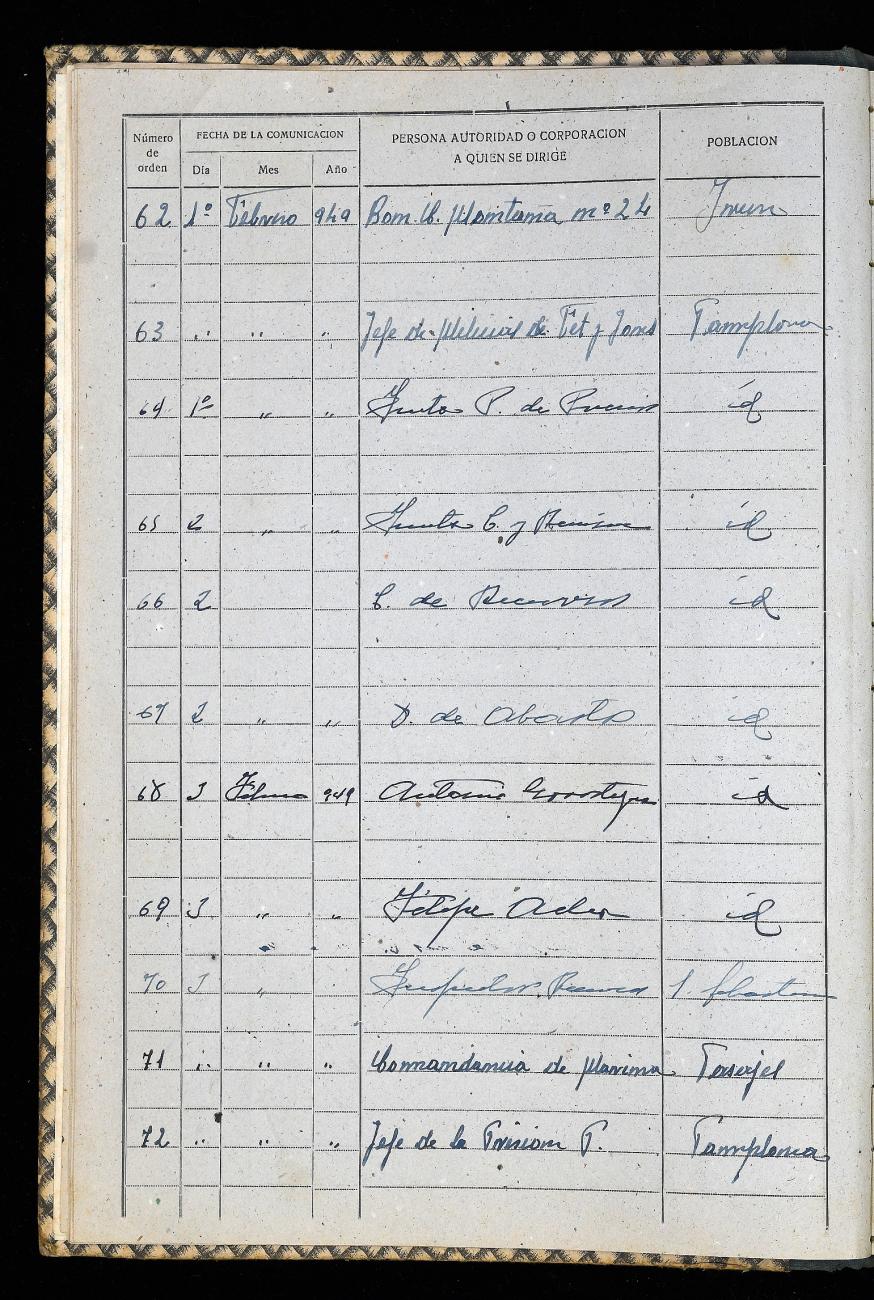 Número de orden FECHA DE LA COMUNICACION PERSONA AUTORIDAD O CORPORACION A QUIEN SE DIRIGE POBLACION
Día Mes Año
62 1º Febrero 949 Bon. C. Montaña nº 24 Irun
63 " " " Jefe de Milicias de Fet y Jons Pamplona
64 1º " " Junta P. de Precios id
65 2 " " Junta C. y id
66 2 C. de Recursos id
67 2 " " D. de Abastos id
68 3 Febrero 949 Antonio id
69 3 " " Felipe id
70 3 " Inspector S. Sebastian
71 " " " Comandancia de Marina Pasajes
72 " " " Jefe de la Prision P. Pamplona